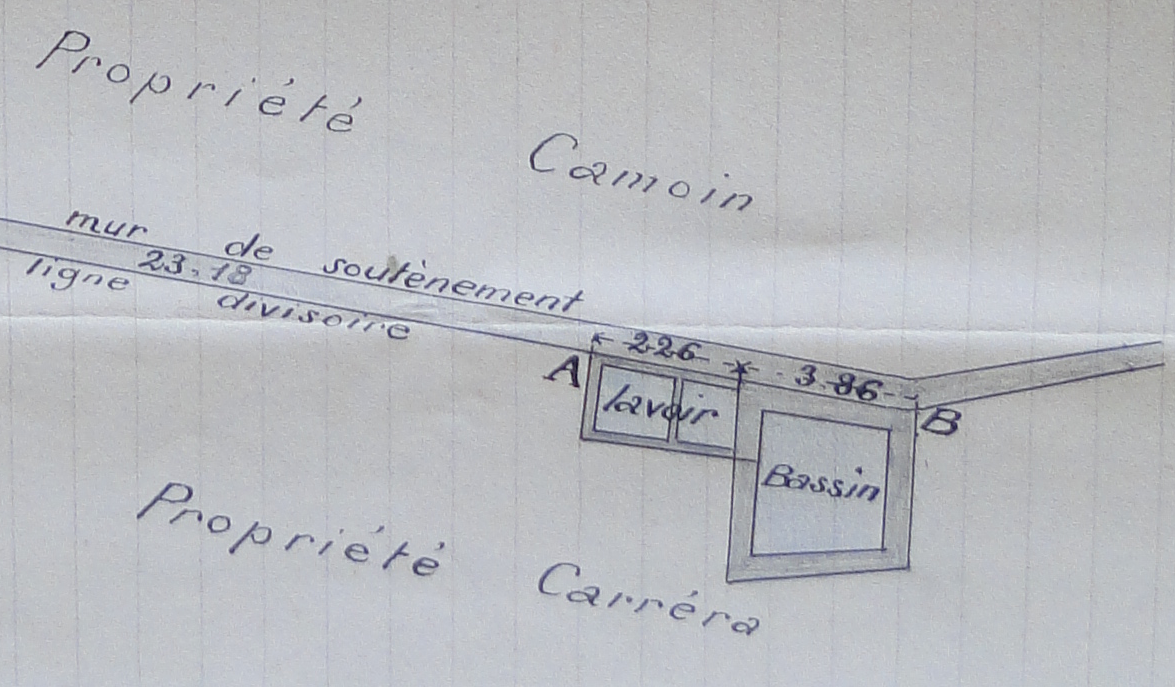 Propriété Camoin
mur de soutènement
23.18
ligne divisoire
226
3.86
A
B
lavoir
Bassin
Propriété Carréra